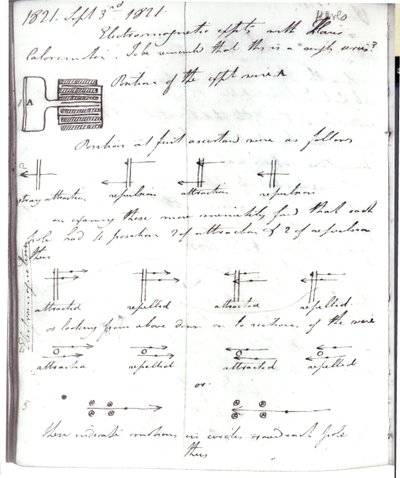 1821. Sept 3rd 1821.
Electromagnetic expts with Hares
Calorimotor. To be remembered that this is a single series?
A
1
Position of the expt wire A
Position at first ascertained were as follows
2
strong attraction repulsion attraction repulsion
on examg these more minutely found that each
pole had 4 positions 2 of attraction & 2 of repulsion
thus
attracted repelled attracted repelled
or looking from above down on to sections of the wire
attracted repelled attracted repelled
or
5
these indicate motions in circles round each pole
thus